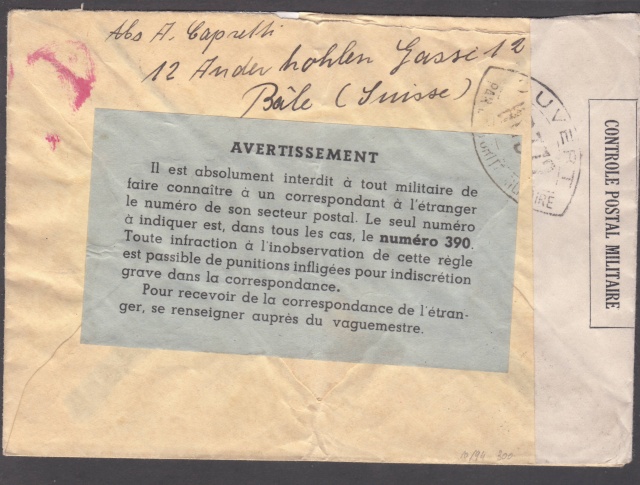 Abs A. Capretti
12 An der hohlen Gasse 12
Bâle (Suisse)
AVERTISSEMENT
Il est absolument interdit à tout militaire de
faire connaître à un correspondant à l'étranger
le numéro de son secteur postal. Le seul numéro
à indiquer est, dans tous les cas, le numéro 390.
Toute infraction à l'inobservation de cette règle
est passible de punitions infligées pour indiscrétion
grave dans la correspondance.
Pour recevoir de la correspondance de l'étran-
ger, se renseigner auprès du vaguemestre.
OUVERT
CONTROLE POSTAL MILITAIRE